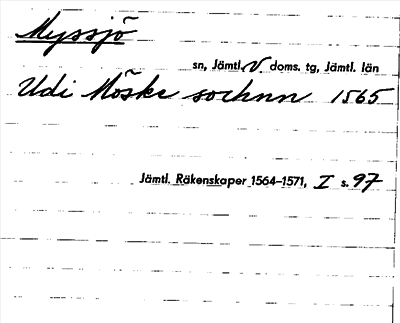 Myssjö
sn, Jämtl. V. doms. tg, Jämtl. län
Udi Möske sochnn 1565
Jämtl. Räkenskaper 1564–1571, I s. 97